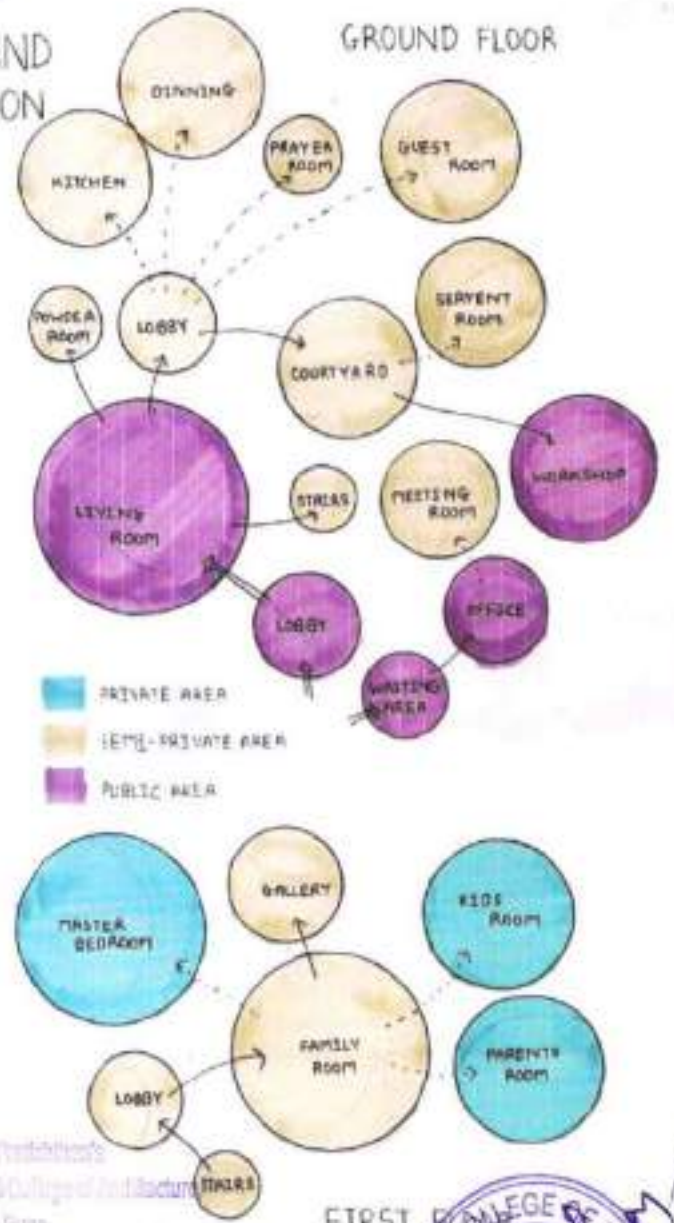 GROUND FLOOR
DINNING
KITCHEN
PRAYER
ROOM
GUEST
ROOM
POWDER
ROOM
LOBBY
COURTYARD
SERVENT
ROOM
WORKSHOP
LIVING
ROOM
STAIRS
MEETING
ROOM
LOBBY
OFFICE
WAITING
AREA
PRIVATE AREA
SEMI-PRIVATE AREA
PUBLIC AREA
MASTER
BEDROOM
GALLERY
KIDS
ROOM
FAMILY
ROOM
PARENTS
ROOM
LOBBY
STAIRS
FIRST